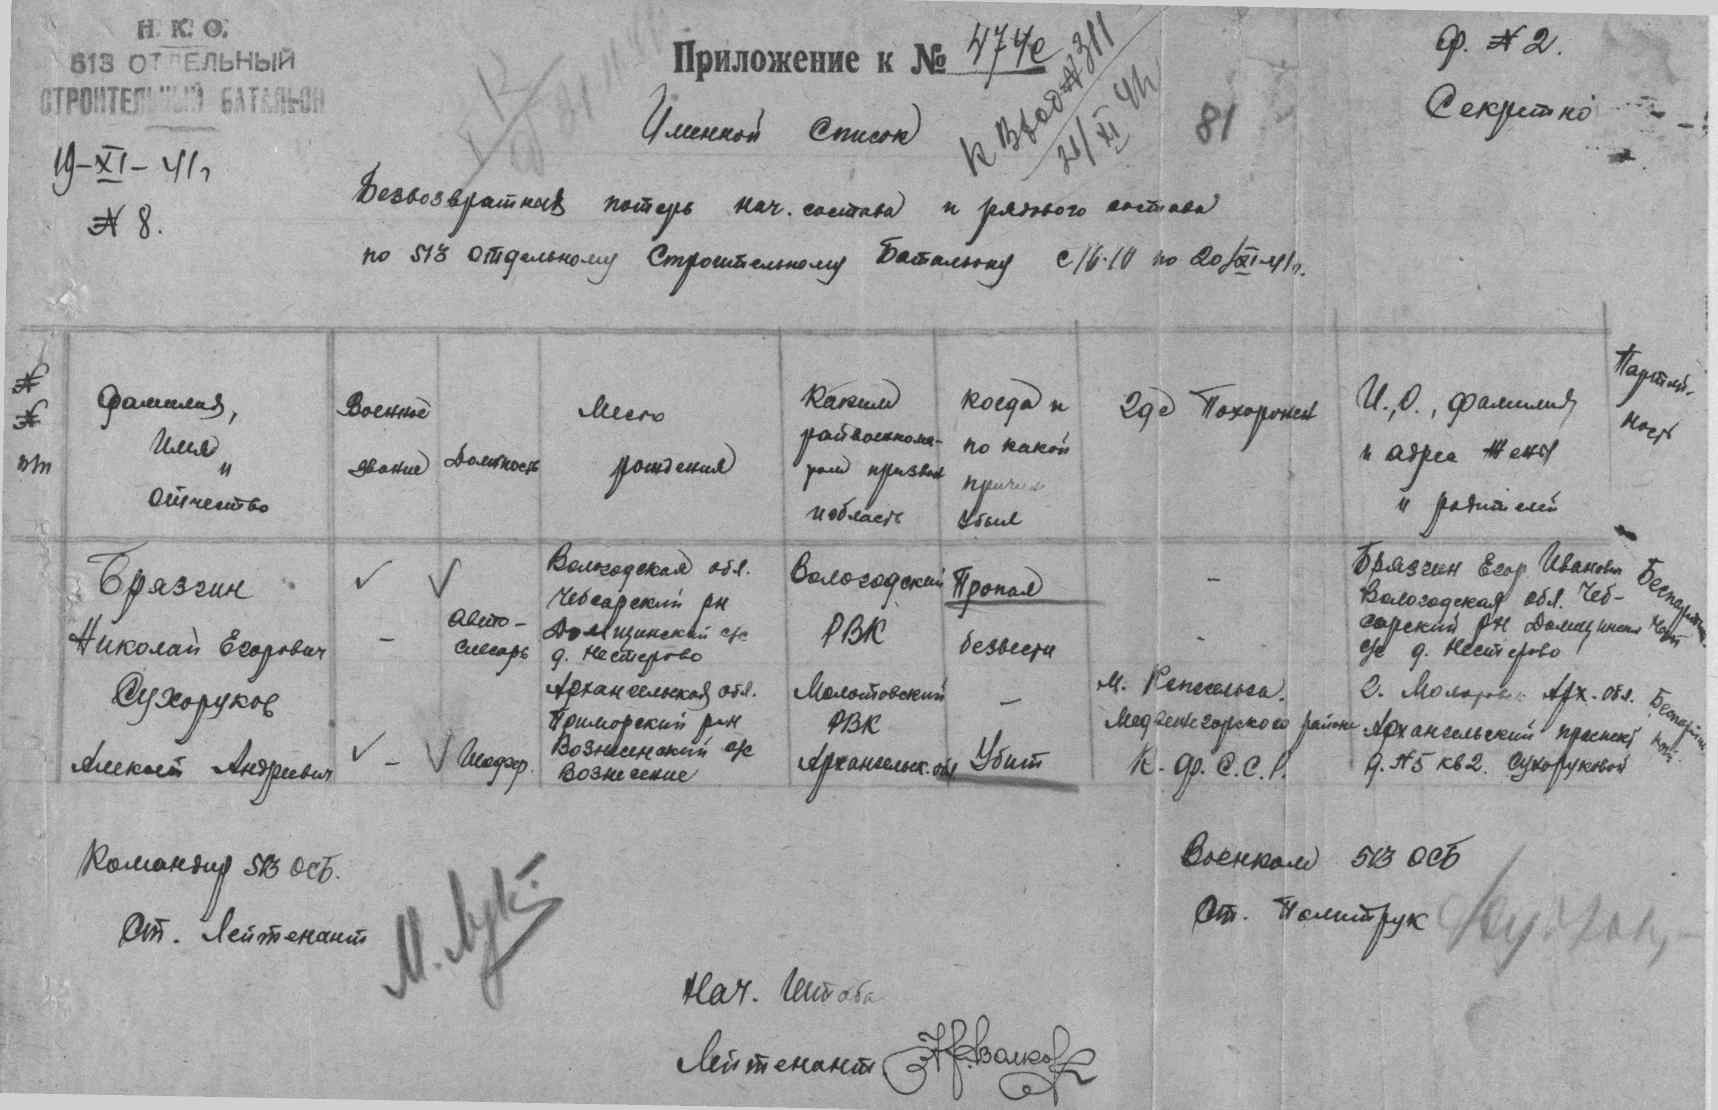 Н. К. О.
513 ОТДЕЛЬНЫЙ
СТРОИТЕЛЬНЫЙ БАТАЛЬОН
19-XI-41г
№ 8.
Приложение к № 474с
К Вход № 311
21/XI 41г
81
Ф. № 2.
Секретно
Именной Список
Безвозвратных потерь нач. состава и рядового состава
по 513 Отдельному Строительному Батальону с 16.10 по 20/XI-41г.
№
№
п/п
Фамилия,
Имя
и
отчество
Военное
звание
Должность
Место
рождения
Каким
райвоенкома-
том призван
и область
Когда и
по какой
причине
убыл
Где Похоронен
И., О., фамилия
и адрес жены
и родителей
Партий-
ность
Брязгин
Николай Егорович
–
Авто-
слесарь
Вологодская обл.
Чебсарский рн
Домшинский с/с
д. Нестерово
Вологодский
РВК
Пропал
безвести
–
-
Брязгин Егор Иванович
Вологодская обл. Чеб-
сарский рн Домшинский
с/с д. Нестерово
Беспартий-
ный
Сухоруков
Алексей Андреевич
–
Шофер.
Архангельская обл.
Приморский рн
Вознесенский с/с
Вознесение
Молотовский
РВК
Архангельск. обл
–
Убит
Медвежегорского района
К. Ф. С. С. Р.
г. Молотовск Арх. обл.
Архангельский проспект
д. №5 кв 2. Сухоруковой
Беспартий
ный
Командир 513 ОСБ.
Ст. Лейтенант
Военком 513 ОСБ
Ст. Политрук
Нач. Штаба
Лейтенант Волков